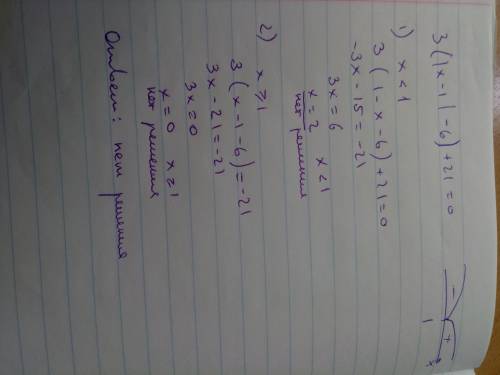 3 (|x-1| -6) +21=0
1) x < 1
3 (1-x-6) +21=0
-3x - 15 = -21
3x = 6
x = 2 x < 1
нет решения
2) x ⩾ 1
3 (x-1-6) = -21
3x - 21 = -21
3x = 0
x = 0 x ⩾ 1
нет решения
Ответ: нет решения
- +
1 x